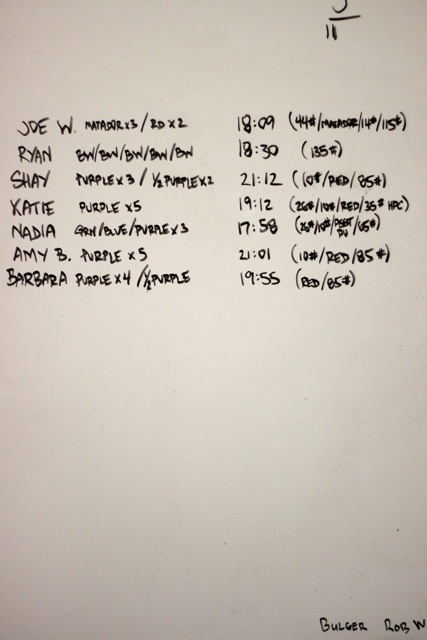 11
JOE W. MATADOR x3 / RD x2 18:09 (44#/MATADOR/14#/115#)
RYAN BW/BW/BW/BW/BW 18:30 (135#)
SHAY PURPLE x3 / 1/2 PURPLE x2 21:12 (10#/RED/85#)
KATIE PURPLE x5 19:12 (26#/10#/RED/35# HPC)
NADIA GRN/BLUE/PURPLE x3 17:58 (26#/10#/ /65#)
AMY B. PURPLE x5 21:01 (10#/RED/85#)
BARBARA PURPLE x4 / 1/2 PURPLE 19:55 (RED/85#)
BULGER ROB W